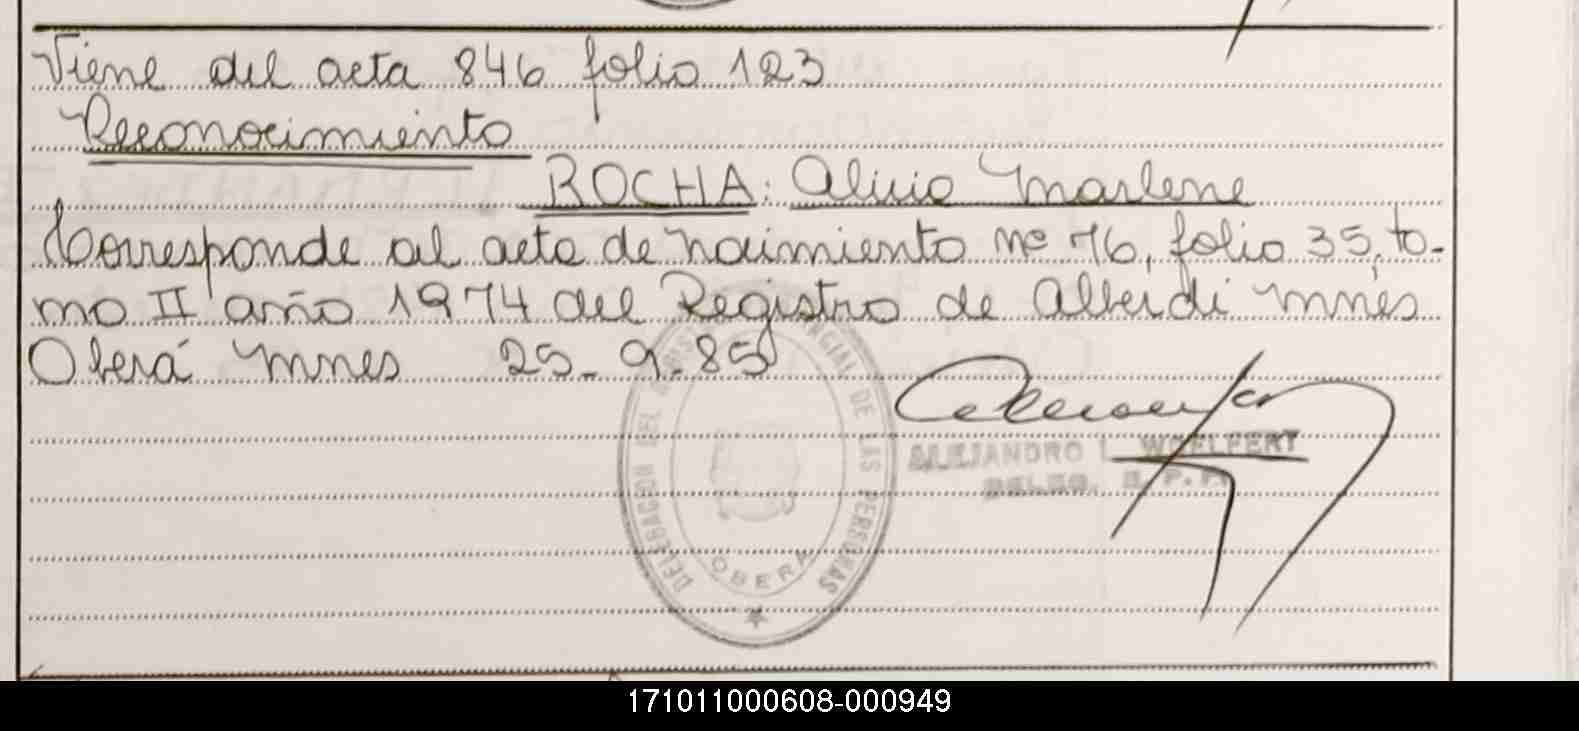 Viene del acta 846 folio 123
Reconocimiento
ROCHA: Alicia Marlene
Corresponde al acta de nacimiento nº 76, folio 35, to-
mo II año 1974 del Registro de Alberdi Mnes
Oberá Mnes 25-9-85
DELEGACION DEL REGISTRO PROVINCIAL DE LAS PERSONAS
OBERÁ
ALEJANDRO L. WOELFERT
DELEG. R. P. P.
171011000608-000949